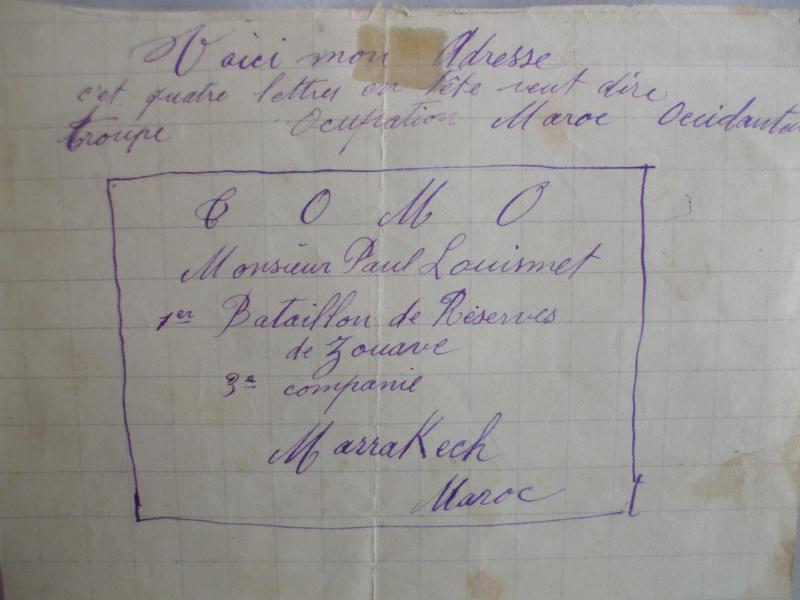 Voici mon Adresse
c'et quatre lettres en tête veut dire
Troupe Ocupation Maroc Occidantal
T O M O
Monsieur Paul Louismet
1er Bataillon de Réserves
de Zouave
3e companie
Marrakech
Maroc